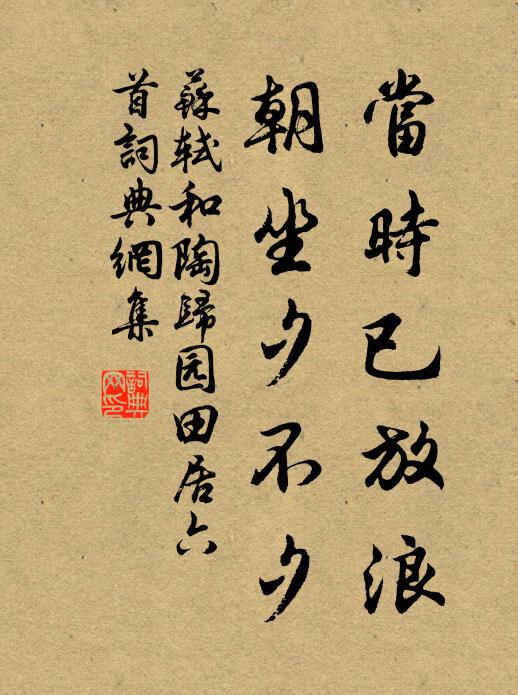 當時已放浪
朝坐夕不夕
蘇軾和陶歸园田居六
首詞典網集
詞典
网印